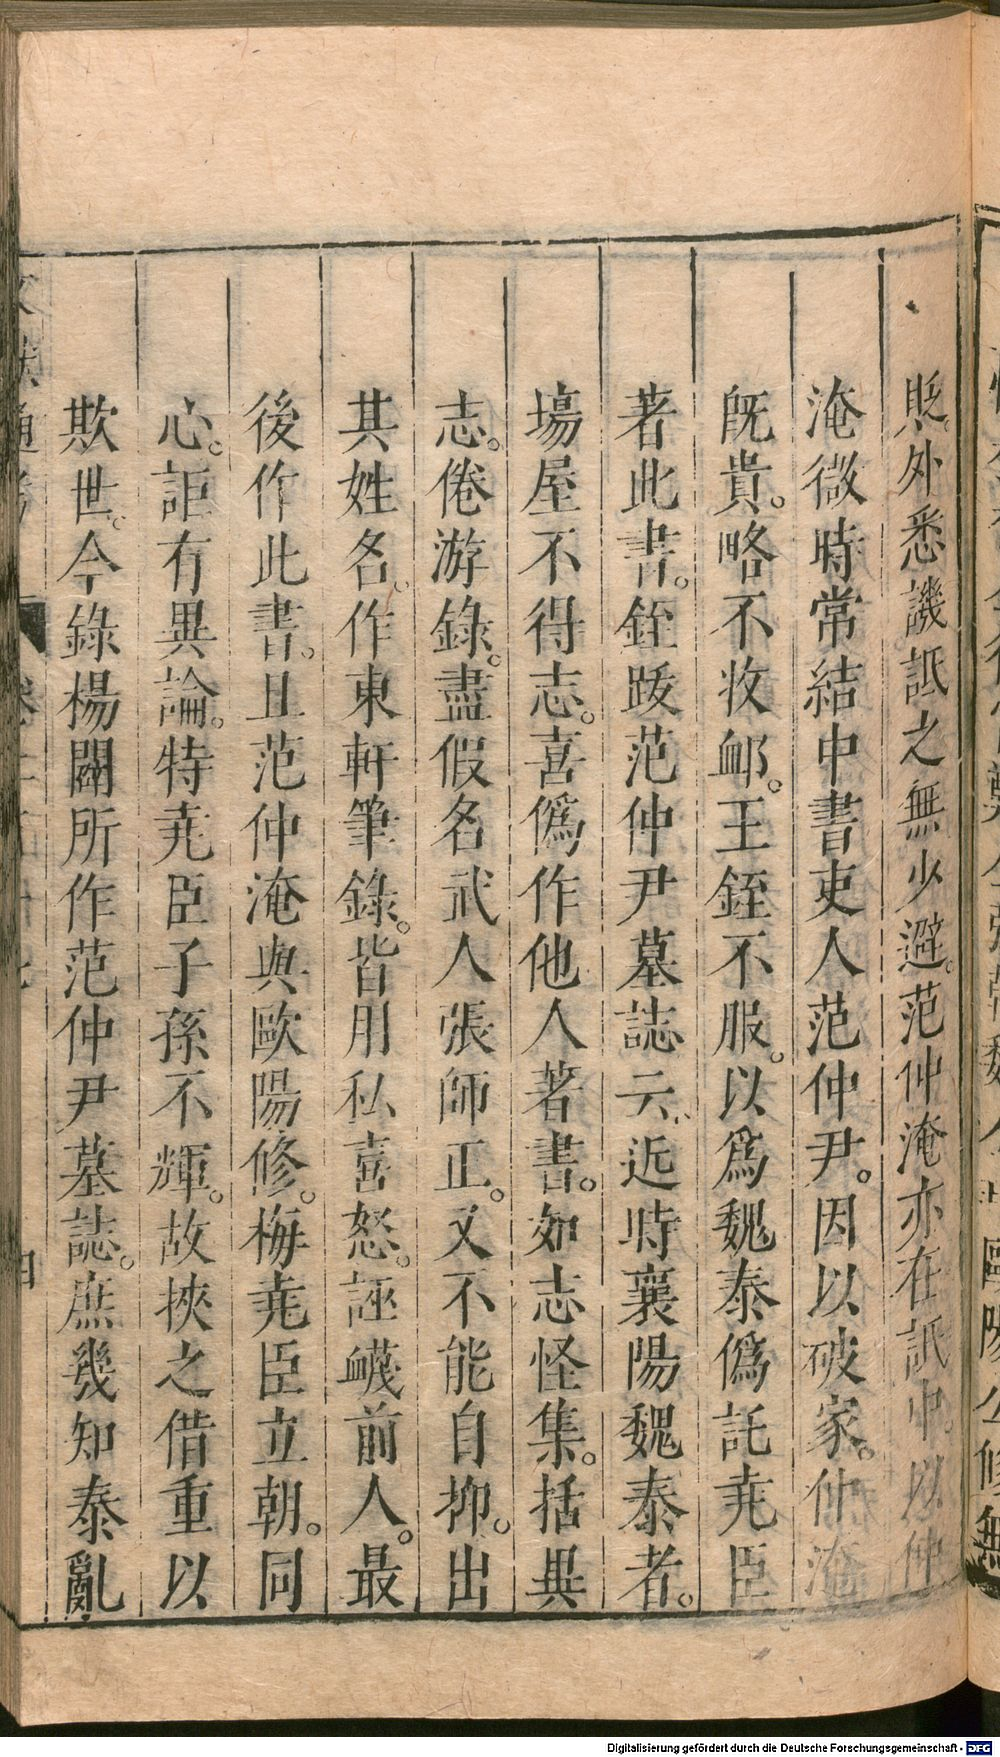 貶。外悉譏詆之無少避。范仲淹亦在詆中。以仲
淹微時常結中書吏人范仲尹。因以破家。仲淹
旣貴。略不收卹。王銍不服。以爲魏泰僞託堯臣
著此書。銍跋范仲尹墓誌云、近時襄陽魏泰者。
場屋不得志。喜僞作他人著書。如志怪集。括異
志。倦游錄。盡假名武人張師正。又不能自抑。出
其姓名。作東軒筆錄。皆用私喜怒。誣衊前人。最
後作此書。且范仲淹與歐陽修。梅堯臣立朝。同
心。詎有異論。特堯臣子孫不輝。故挾之借重以
欺世。今錄楊闢所作范仲尹墓誌。庶幾知泰亂
Digitalisierung gefördert durch die Deutsche Forschungsgemeinschaft - DFG